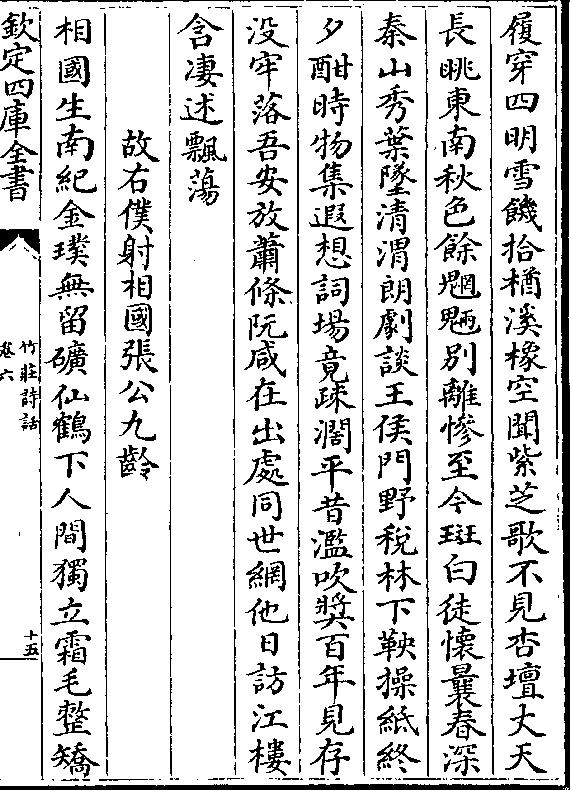 履穿四明雪饑拾楢溪橡空聞紫芝歌不見杏壇丈天
長眺東南秋色餘魍魎别離慘至今斑白徒懷曩春深
秦山秀葉墜清渭朗劇談王侯門野稅林下鞅操紙終
夕酣時物集遐想詞場竟疎濶平昔濫吹奬百年見存
没牢落吾安放蕭條阮咸在出處同世網他日訪江樓
含凄述飄蕩
故右僕射相國張公九齡
相國生南紀金璞無留礦仙鶴下人間獨立霜毛整矯
欽定四庫全書
竹莊詩話
卷六
十五